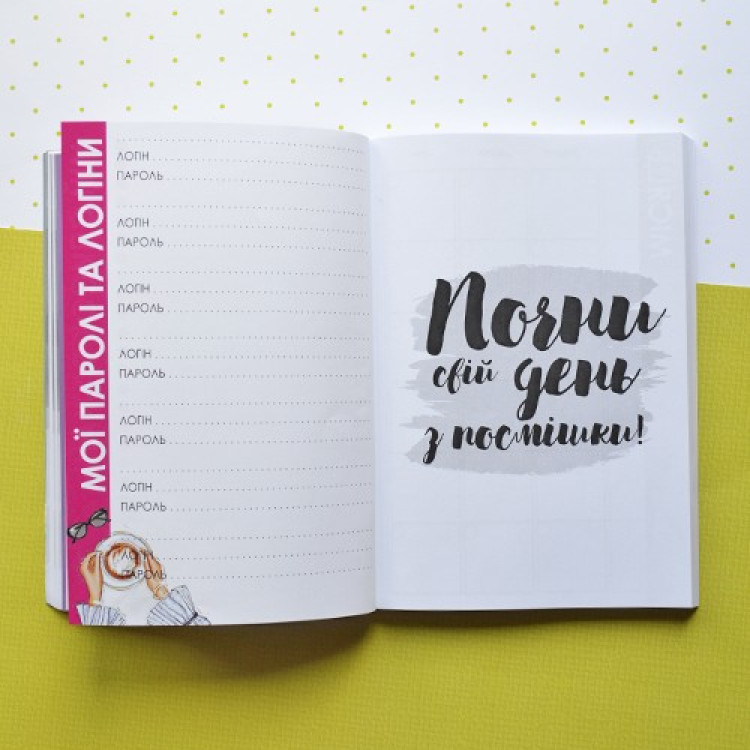 МОЇ ПАРОЛІ ТА ЛОГІНИ
ЛОГІН
ПАРОЛЬ
ЛОГІН
ПАРОЛЬ
ЛОГІН
ПАРОЛЬ
ЛОГІН
ПАРОЛЬ
ЛОГІН
ПАРОЛЬ
ЛОГІН
ПАРОЛЬ
ЛОГІН
ПАРОЛЬ
Почни
свій день
з посмішки!